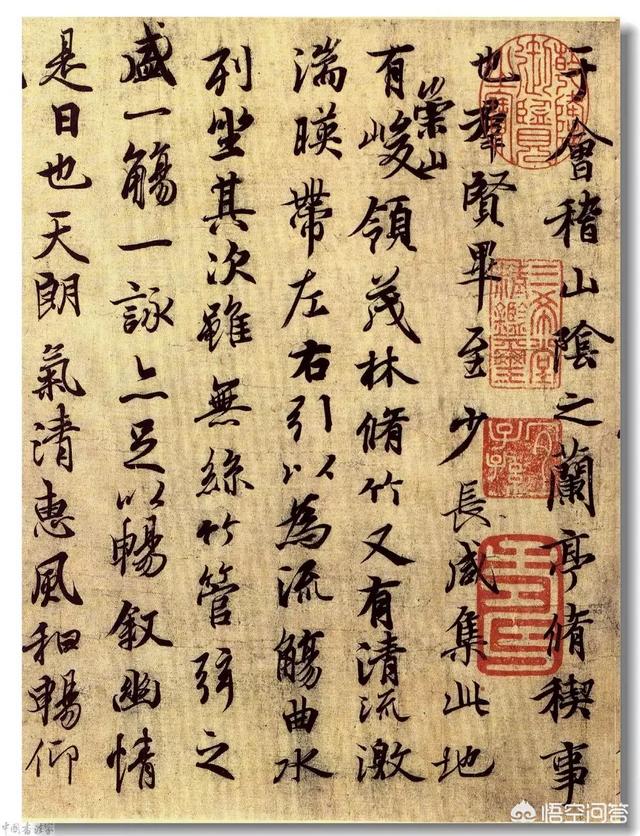 于會稽山陰之蘭亭脩稧事
也羣賢畢至少長咸集此地
有崇山峻領茂林脩竹又有清流激
湍暎帶左右引以為流觴曲水
列坐其次雖無絲竹管弦之
盛一觴一詠亦足以暢敘幽情
是日也天朗氣清惠風和暢仰
三希堂精鑑璽
宜子孫
悟空问答